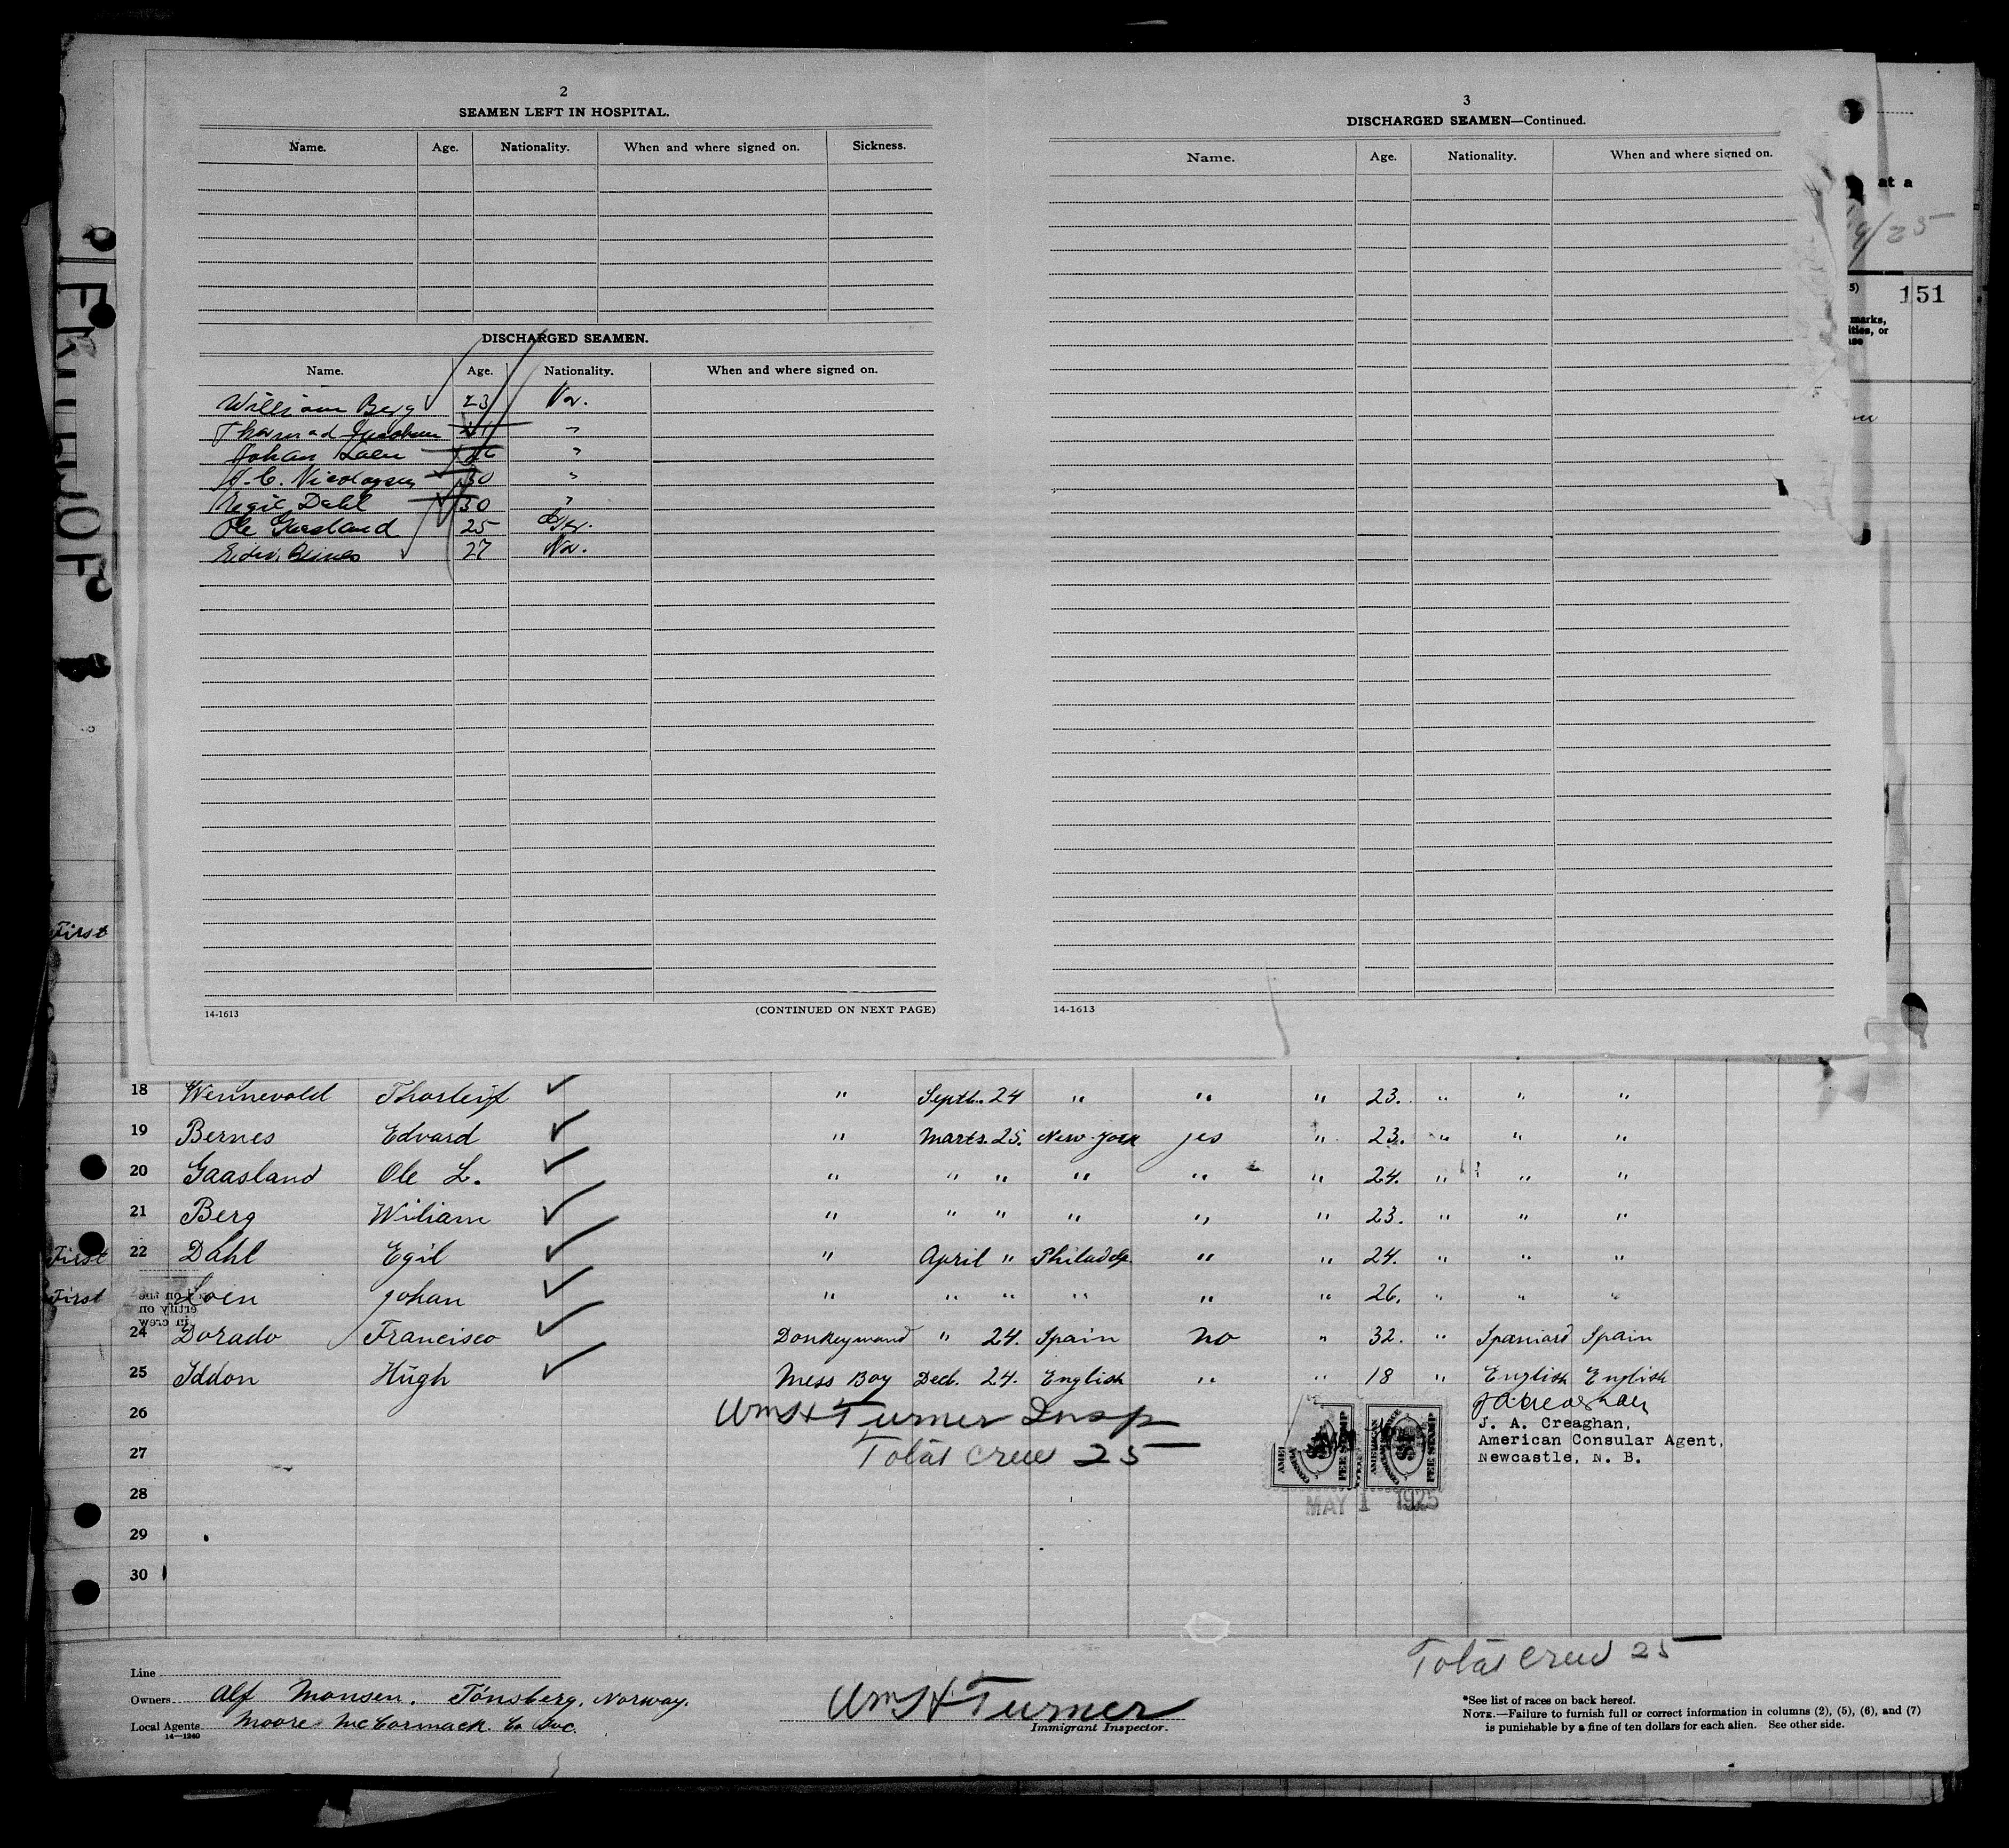 2
SEAMEN LEFT IN HOSPITAL.
Name. Age. Nationality. When and where signed on. Sickness.
DISCHARGED SEAMEN.
Name. Age. Nationality. When and where signed on.
William Berg 23 Nor.
41 "
Johan Loen 26 "
30 "
Dahl 30 "
Ole Gaasland 25
27 No.
14-1613 (CONTINUED ON NEXT PAGE)
3
DISCHARGED SEAMEN—Continued.
Name. Age. Nationality. When and where signed on.
14-1613
at a
9/25
5) 151
marks,
ities, or
ase
FRITHJOF
First
18 Wennevold Thorleif " Septb. 24 " " " 23. " " "
19 Bernes Edvard " Marts. 25. New-York yes " 23. " " "
20 Gaasland Ole L. " " " " " " 24. " " "
21 Berg Wiliam " " " " " " 23. " " "
First 22 Dahl Egil " April " Philadelp. " " 24. " " "
First Loen Johan " " " " " " 26. " " "
24 Dorado Francisco Donkeymand " 24. Spain no " 32. " Spaniard Spain
25 Iddon Hugh Mess Boy Dec. 24. English " " 18 " English English
26 Wm H Turner Insp
27 Total Crew 25
J. A. Creaghan,
American Consular Agent,
Newcastle, N. B.
AMERICAN CONSULAR FEE STAMP
MAY 1 1925
28
29
30
Total Crew 25
Line
Owners Alf Monsen. Tönsberg, Norway.
Local Agents Moore-McCormack. Co Inc.
14—1240
Wm H Turner
Immigrant Inspector.
*See list of races on back hereof.
NOTE.—Failure to furnish full or correct information in columns (2), (5), (6), and (7)
is punishable by a fine of ten dollars for each alien. See other side.